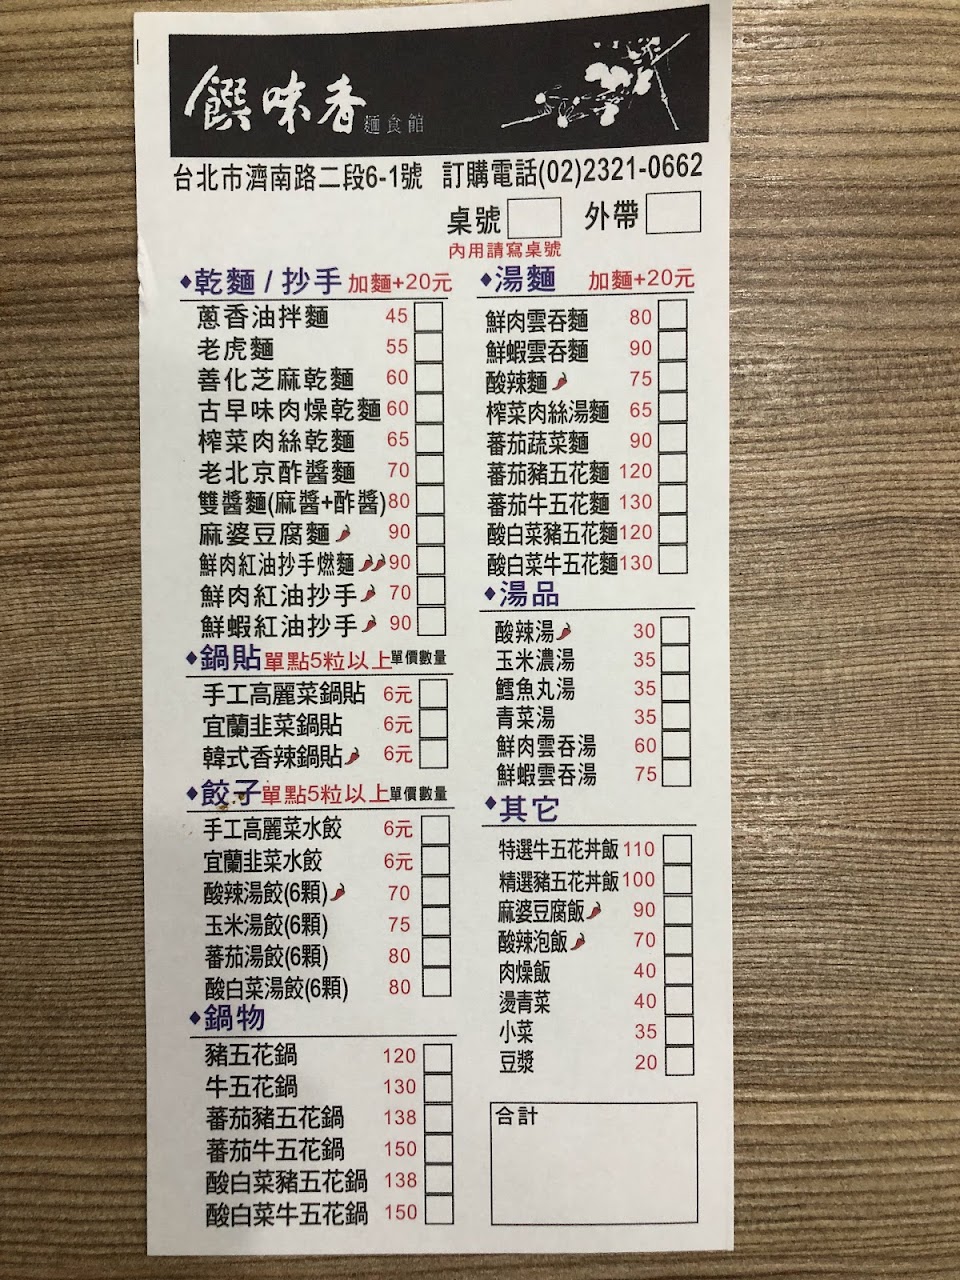 饌味香 麵食館
台北市濟南路二段6-1號 訂購電話(02)2321-0662
桌號 外帶
內用請寫桌號
◆乾麵 / 抄手 加麵+20元
蔥香油拌麵 45
老虎麵 55
善化芝麻乾麵 60
古早味肉燥乾麵 60
榨菜肉絲乾麵 65
老北京酢醬麵 70
雙醬麵(麻醬+酢醬) 80
麻婆豆腐麵 90
鮮肉紅油抄手燃麵 90
鮮肉紅油抄手 70
鮮蝦紅油抄手 90
◆鍋貼 單點5粒以上 單價數量
手工高麗菜鍋貼 6元
宜蘭韭菜鍋貼 6元
韓式香辣鍋貼 6元
◆餃子 單點5粒以上 單價數量
手工高麗菜水餃 6元
宜蘭韭菜水餃 6元
酸辣湯餃(6顆) 70
玉米湯餃(6顆) 75
蕃茄湯餃(6顆) 80
酸白菜湯餃(6顆) 80
◆鍋物
豬五花鍋 120
牛五花鍋 130
蕃茄豬五花鍋 138
蕃茄牛五花鍋 150
酸白菜豬五花鍋 138
酸白菜牛五花鍋 150
◆湯麵 加麵+20元
鮮肉雲吞麵 80
鮮蝦雲吞麵 90
酸辣麵 75
榨菜肉絲湯麵 65
蕃茄蔬菜麵 90
蕃茄豬五花麵 120
蕃茄牛五花麵 130
酸白菜豬五花麵 120
酸白菜牛五花麵 130
◆湯品
酸辣湯 30
玉米濃湯 35
鱈魚丸湯 35
青菜湯 35
鮮肉雲吞湯 60
鮮蝦雲吞湯 75
◆其它
特選牛五花丼飯 110
精選豬五花丼飯 100
麻婆豆腐飯 90
酸辣泡飯 70
肉燥飯 40
燙青菜 40
小菜 35
豆漿 20
合計